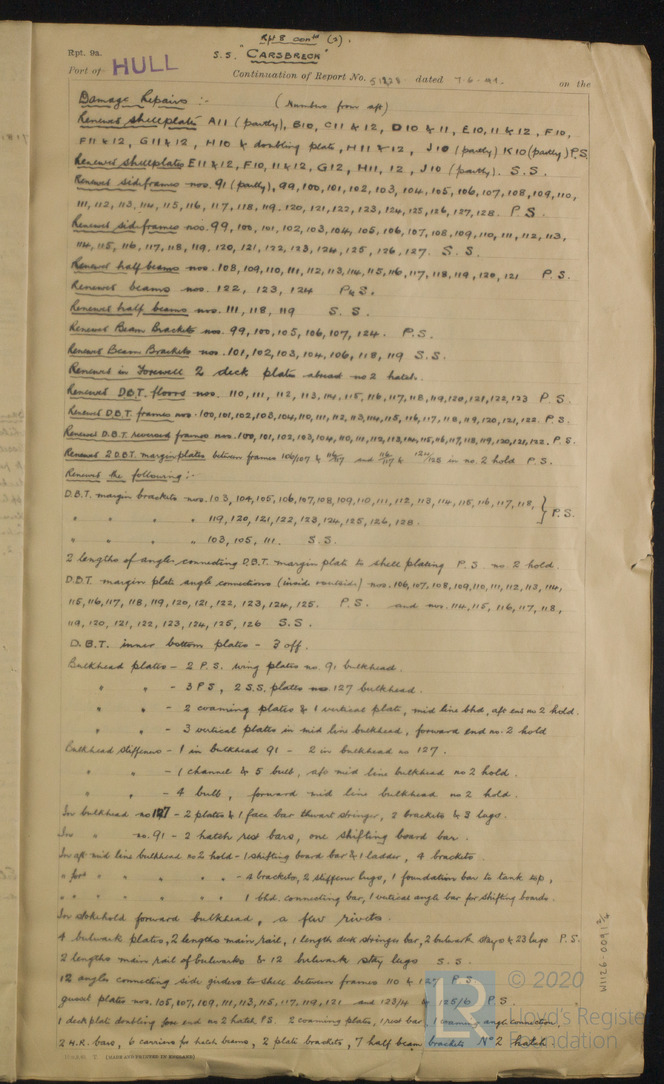 Rpt 8 contd (2).
Rpt. 9a.
S.S. "CARSBRECK"
Port of HULL
Continuation of Report No. 51828 dated 7.6.41. on the
Damage Repairs :- (Numbers from aft)
Renewed shellplates A11 (partly), B10, C11 & 12, D10 & 11, E10, 11 & 12, F10,
F11 & 12, G11 & 12, H10 & doubling plate, H11 & 12, J10 (partly) K10 (partly) P.S.
Renewed shellplates E11 & 12, F10, 11 & 12, G12, H11, 12, J10 (partly). S.S.
Renewed sideframes nos. 91 (partly), 99, 100, 101, 102, 103, 104, 105, 106, 107, 108, 109, 110,
111, 112, 113, 114, 115, 116, 117, 118, 119, 120, 121, 122, 123, 124, 125, 126, 127, 128. P.S.
Renewed sideframes nos. 99, 100, 101, 102, 103, 104, 105, 106, 107, 108, 109, 110, 111, 112, 113,
114, 115, 116, 117, 118, 119, 120, 121, 122, 123, 124, 125, 126, 127. S.S.
Renewed half beams nos. 108, 109, 110, 111, 112, 113, 114, 115, 116, 117, 118, 119, 120, 121 P.S.
Renewed beams nos. 122, 123, 124 P & S.
Renewed half beams nos. 111, 118, 119 S.S.
Renewed Beam Brackets nos. 99, 100, 105, 106, 107, 124. P.S.
Renewed Beam Brackets nos. 101, 102, 103, 104, 106, 118, 119 S.S.
Renewed in Forewell 2 deck plates abreast no 2 hatch.
Renewed D.B.T. floors nos. 110, 111, 112, 113, 114, 115, 116, 117, 118, 119, 120, 121, 122, 123 P.S.
Renewed D.B.T. frames nos. 100, 101, 102, 103, 104, 110, 111, 112, 113, 114, 115, 116, 117, 118, 119, 120, 121, 122. P.S.
Renewed D.B.T. reversed frames nos. 100, 101, 102, 103, 104, 110, 111, 112, 113, 114, 115, 116, 117, 118, 119, 120, 121, 122. P.S.
Renewed 2 D.B.T. margin plates between frames 106/107 & 116/117 and 116/117 & 124/125 in no. 2 hold P.S.
Renewed the following :-
D.B.T. margin brackets nos. 103, 104, 105, 106, 107, 108, 109, 110, 111, 112, 113, 114, 115, 116, 117, 118,
" " " 119, 120, 121, 122, 123, 124, 125, 126, 128. } P.S.
" " " 103, 105, 111. S.S.
2 lengths of angle connecting D.B.T. margin plate to shell plating P.S. no. 2 hold.
D.B.T. margin plate angle connections (inside & outside) nos. 106, 107, 108, 109, 110, 111, 112, 113, 114,
115, 116, 117, 118, 119, 120, 121, 122, 123, 124, 125. P.S. and nos. 114, 115, 116, 117, 118,
119, 120, 121, 122, 123, 124, 125, 126 S.S.
D.B.T. inner bottom plates - 3 off.
Bulkhead plates - 2 P.S. wing plates no. 91 bulkhead.
" " - 3 PS, 2 S.S. plates no. 127 bulkhead.
" " - 2 coaming plates & 1 vertical plate, mid line bhd, aft end no 2 hold.
" " - 3 vertical plates in mid line bulkhead, forward end no. 2 hold
Bulkhead stiffeners - 1 in bulkhead 91 - 2 in bulkhead no 127.
" " - 1 channel & 5 bulb, aft mid line bulkhead no 2 hold.
" " - 4 bulb, forward mid line bulkhead no 2 hold.
In bulkhead no 127 - 2 plates & 1 face bar thwart stringer, 2 brackets & 3 lugs.
In " no. 91 - 2 hatch rest bars, one shifting board bar.
In aft mid line bulkhead no 2 hold - 1 shifting board bar & 1 ladder, 4 brackets.
" ford " " " " " - 4 brackets, 2 stiffener lugs, 1 foundation bar to tank top,
" " " " " " 1 bhd. connecting bar, 1 vertical angle bar for shifting boards.
In stokehold forward bulkhead, a few rivets.
4 bulwark plates, 2 lengths main rail, 1 length deck stringer bar, 2 bulwark stays & 23 lugs P.S.
2 lengths main rail of bulwarks & 12 bulwark stay lugs S.S.
12 angles connecting side girders to shell between frames 110 & 127 P.S.
gusset plates nos. 105, 107, 109, 111, 113, 115, 117, 119, 121 and 123/4 & 125/6 P.S.
1 deck plate doubling fore end no 2 hatch P.S. 2 coaming plates, 1 rest bar, 1 coaming angle connection,
2 H.R. bars, 6 carriers for hatch beams, 2 plate brackets, 7 half beam brackets No 2 hatch
(MADE AND PRINTED IN ENGLAND)
W1126-0091 2/2
© 2020
Lloyd's Register
Foundation